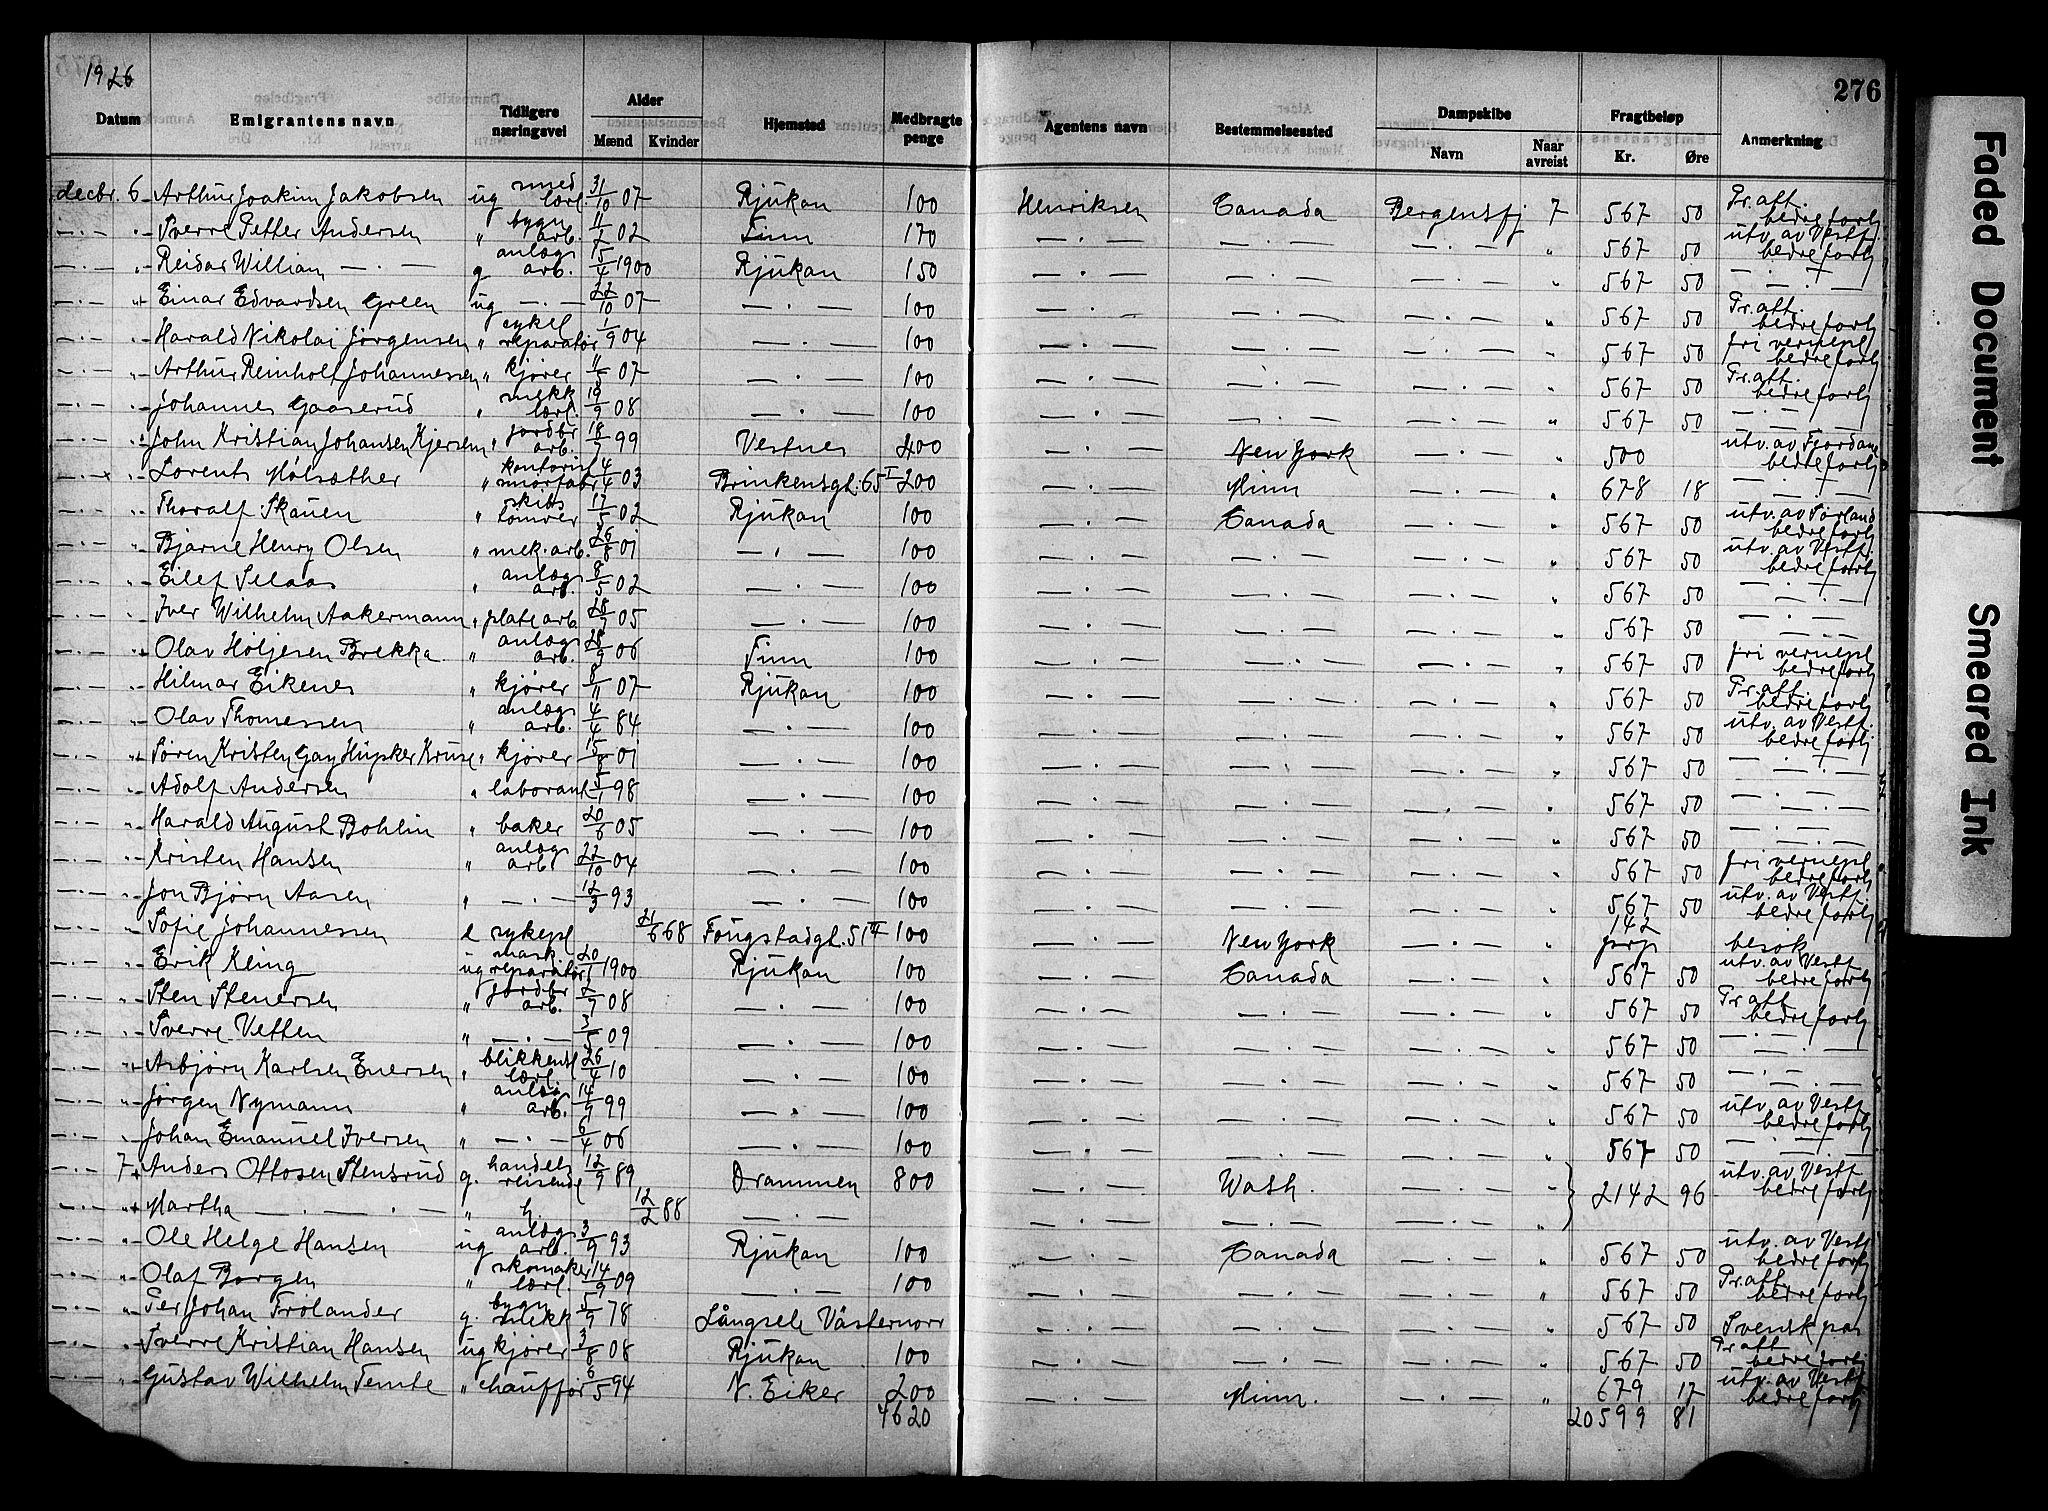 1926
276
Datum Emigrantens navn Tidligere næringsvei Alder Mænd Kvinder Hjemsted Medbragte penge Agentens navn Bestemmelsessted Dampskibe Navn Naar avreist Fragtbeløp Kr. Øre Anmerkning
decbr. 6 Arthur Joakim Jakobsen ug smed lærl. 31/10 07 Rjukan 100 Henriksen Canada Bergensfj 7 567 50 Pr. att. bedre forhj
—·— " Sverre Petter Andersen " bygn arb. 02 Tinn 170 —·— —·— —·— " 567 50 utv. av Vestf. bedre forhj
—·— " Reidar William —·— g anlægs arb. 15/4 1900 Rjukan 150 —·— —·— —·— " 567 50 —·—
—·— " Einar Edvardsen Green ug —·— 22/10 07 —·— 100 —·— —·— —·— " 567 50 Pr. att. bedre forhj
—·— " Harald Nikolai Jørgensen " cykel reparatør 1/9 04 —·— 100 —·— —·— —·— " 567 50 fri vernepl bedre forhj
—·— " Arthur Reinholt Johannessen " kjører 07 —·— 100 —·— —·— —·— " 567 50 Pr. att. bedre forhj
—·— " Johannes Gaaserud " mekk lærl. 19/9 08 —·— 100 —·— —·— —·— " 567 50 —·—
—·— " John Kristian Johansen Kjersem " jordbr arb. 18/7 99 Vestnes 400 —·— New York —·— " 500 utv. av Fjordane bedre forhj
—·— " Lorents Molsæther " kontorist smørfabr 4/4 03 Brinkensgt. 65 I 200 —·— Minn —·— " 678 18 —·—
—·— " Thoralf Skauen " skibs tømrer 17/5 02 Rjukan 100 —·— Canada —·— " 567 50 utv. av Sørland bedre forhj
—·— " Bjarne Henry Olsen " mek. arb. 26/8 01 —·— 100 —·— —·— —·— " 567 50 utv. av Vestf. bedre forhj
—·— " Eilef Selaas " anlægs arb. 8/5 02 —·— 100 —·— —·— —·— " 567 50 —·—
—·— " Iver Wilhelm Aakermann " plate arb. 05 —·— 100 —·— —·— —·— " 567 50 —·—
—·— " Olav Høljesen Brekka " anlægs arb. 06 Tinn 100 —·— —·— —·— " 567 50 fri vernepl bedre forhj
—·— " Hilmar Eikenes " kjører 8/11 07 Rjukan 100 —·— —·— —·— " 567 50 Pr. att. bedre forhj
—·— " Olav Thomessen " anlægs arb. 4/4 84 —·— 100 —·— —·— —·— " 567 50 utv. av Vestf. bedre forhj
—·— " Søren Kristen Gay Hüpker Kruse " kjører 15/8 01 —·— 100 —·— —·— —·— " 567 50 —·—
—·— " Adolf Andersen " laborant 5/1 98 —·— 100 —·— —·— —·— " 567 50 —·—
—·— " Harald August Bohlin " baker 20/6 05 —·— 100 —·— —·— —·— " 567 50 —·—
—·— " Kristen Hansen " anlægs arb 22/10 04 —·— 100 —·— —·— —·— " 567 50 fri vernepl bedre forhj
—·— " Jon Bjørn Aasen " —·— 12/3 93 —·— 100 —·— —·— —·— " 567 50 utv. av Vestf. bedre forhj
—·— " Sofie Johannessen e sykepl 21/6 68 Fougstadgt. 51 100 —·— New York —·— " 142 prp besøk
—·— " Erik Kling ug mask reparatør 20/1 1900 Rjukan 100 —·— Canada —·— " 567 50 utv. av Vestf bedre forhj
—·— " Sten Stenersen " jordbr arb. 2/9 08 —·— 100 —·— —·— —·— " 567 50 Pr. att bedre forhj
—·— " Sverre Vetten " —·— 3/5 09 —·— 100 —·— —·— —·— " 567 50 —·—
—·— " Asbjørn Karlsen Enersen " blikkensl lærl 26/4 10 —·— 100 —·— —·— —·— " 567 50 —·—
—·— " Jørgen Nymann " anlæg arb. 14/9 99 —·— 100 —·— —·— —·— " 567 50 utv. av Vestf. bedre forhj
—·— " Johan Emanuel Iversen " —·— 6/4 06 —·— 100 —·— —·— —·— " 567 50 —·—
—·— 7 Anders Ottosen Stensrud g. handels reisende 12/9 89 Drammen 800 —·— Wash. —·— " 2142 96 utv. av Vestf bedre forhj
—·— " Martha —·—·— " h. 12/2 88 —·— —·— —·— —·— "
—·— " Ole Helge Hansen ug anlægs arb. 3/9 93 Rjukan 100 —·— Canada —·— " 567 50 utv. av Vestf bedre forhj
—·— " Olaf Borgen " skomaker lærl. 14/9 09 —·— 100 —·— —·— —·— " 567 50 Pr. att. bedre forhj
—·— " Per Johan Frölander g. bygn snekk 5/9 78 Långsele Västernorr —·— —·— —·— " 567 50 Svensk pas
—·— " Sverre Kristian Hansen ug kjører 3/8 08 Rjukan 100 —·— —·— —·— " 567 50 Pr att bedre forhj
" Gustav Wilhelm Temte " chauffør 6/5 94 N. Eiker 200 —·— Minn. —·— " 679 17 utv. av Vestf bedre forhj
4620 20599 81
Faded Document
Smeared Ink